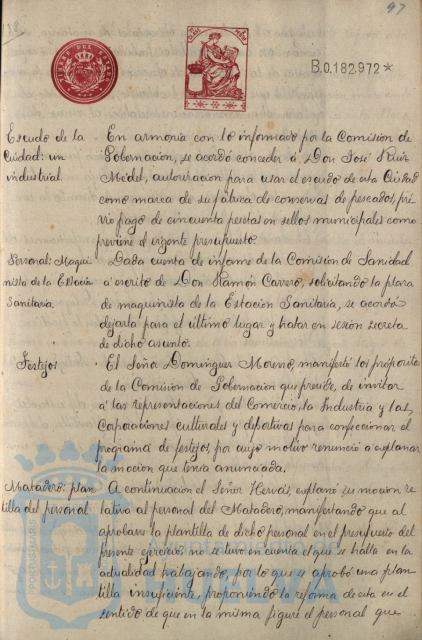 97
B.0.182.972*
Escudo de la
Ciudad: un
industrial.
En armonía con lo informado por la Comisión de
Gobernación, se acordó conceder á Don José Ruiz
autorización para usar el escudo de esta Ciudad
como marca de su fábrica de conservas de pescados, pre
vio pago de cincuenta pesetas en sellos municipales como
previene el vigente presupuesto.
Personal: Maqui
nista de la Estación
Sanitaria.
Dada cuenta de informe de la Comisión de Sanidad
a escrito de Don Ramón Carrero, solicitando la plaza
de maquinista de la Estación Sanitaria, se acordó
dejarla para el último lugar y tratar en sesión secreta
de dicho asunto.
Festejos
El Señor Dominguez Moreno, manifestó los propósitos
de la Comisión de Gobernación que preside, de invitar
á las representaciones del Comercio, la Industria y las,
Corporaciones culturales y deportivas para confeccionar el
programa de festejos, por cuyo motivo renunció a explanar
la moción que tenía anunciada.
Matadero: plan
tilla del personal
A continuación el Señor Hervás, explanó su moción re
lativa al personal del Matadero, manifestando que al
aprobarse la plantilla de dicho personal en el presupuesto del
presente ejercicio no se tuvo en cuenta el que se halla en la
actualidad trabajando, por lo que se aprobó una plan
tilla insuficiente, proponiendo la reforma de esta en el
sentido de que en la misma figure el personal que